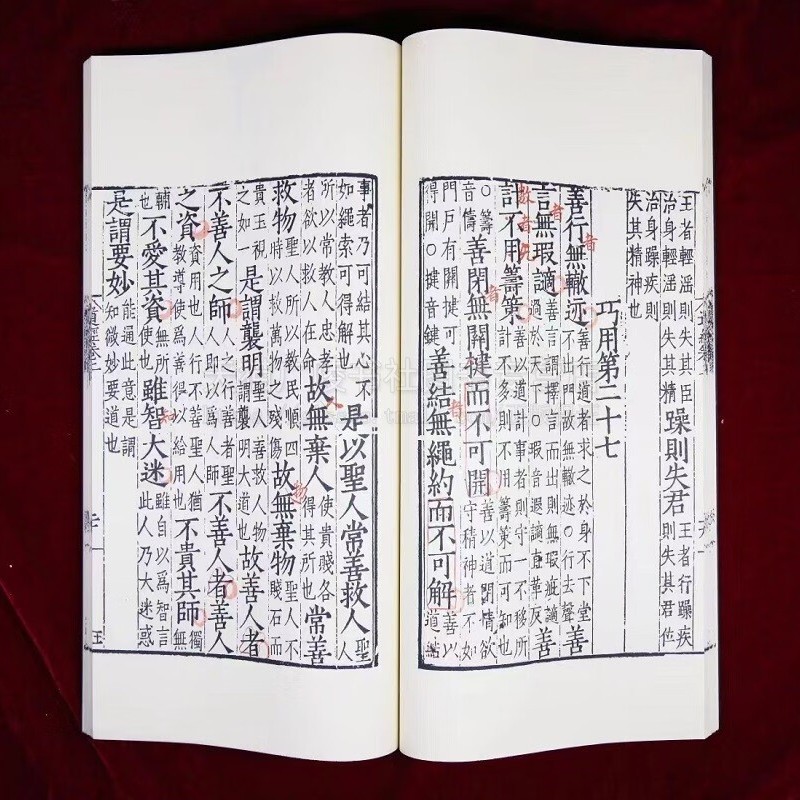 王者輕淫則失其臣
治身輕淫則失其精
躁則失君
王者行躁疾
則失其君位
治身躁疾則
失其精神也
巧用第二十七
善行無轍迹
善行道者求之於身不下堂
不出門故無轍迹○行去聲
善
言無瑕讁
善言謂擇言而出則無瑕疵讁
過於天下○瑕音遐讁直革反
善
計不用籌策
善以道計事者則守一不移所
計不多則不用籌策而可知也
○籌
音儔
善閉無關揵而不可開
善以道閉情欲
守精神者不如
門戶有關揵可
得開○揵音鍵
善結無繩約而不可解
善以
道結
事者乃可結其心不
如繩索可得解也
是以聖人常善救人
聖
人
所以常教人忠孝
者欲以救人在命
故無棄人
使貴賤各
得其所也
常善
救物
聖人所以教民順四
時以救萬物之殘傷
故無棄物
聖人不
賤石而
貴玉視
之如一
是謂襲明
聖人善救人物
謂襲明大道也
故善人者
不善人之師
人之行善者聖
人即以為人師
不善人者善人
之資
資用也人行不善聖人猶
教導使為善得以給用也
不貴其師
獨
無
輔
也
不愛其資
無所
使也
雖智大迷
雖自以為智言
此人乃大迷惑
是謂要妙
能通此意是謂
知微妙要道也